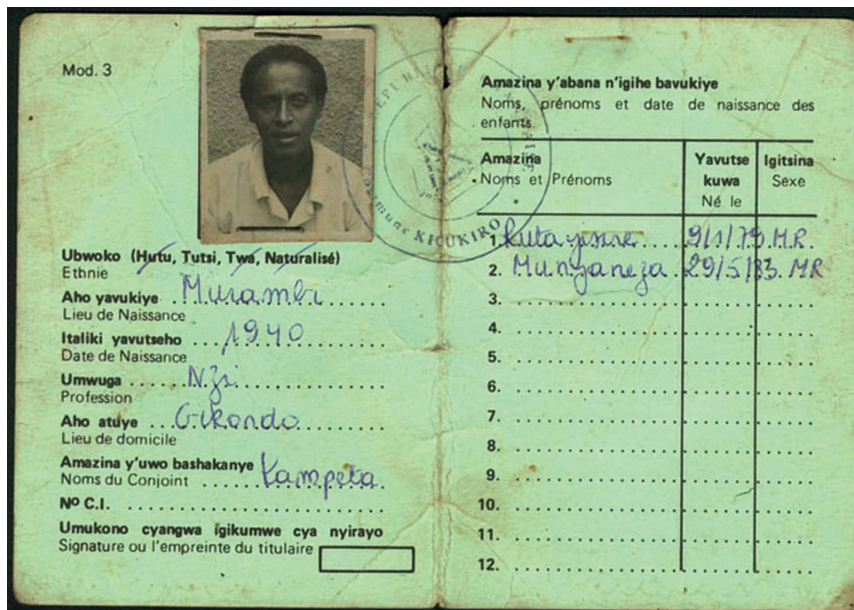 Mod. 3
Ubwoko (Hutu, Tutsi, Twa, Naturalisé)
Ethnie
Aho yavukiye Murambi
Lieu de Naissance
Italiki yavutseho 1940
Date de Naissance
Umwuga
Profession
Aho atuye Gikondo
Lieu de domicile
Amazina y'uwo bashakanye Kampeta
Noms du Conjoint
Nº C.I.
Umukono cyangwa igikumwe cya nyirayo
Signature ou l'empreinte du titulaire
Commune KICUKIRO
Amazina y'abana n'igihe bavukiye
Noms, prénoms et date de naissance des
enfants.
Amazina Yavutse Igitsina
Noms et Prénoms kuwa Sexe
Né le
1. 9/1/79 M.R.
2. Munyaneza 29/5/83. MR
3.
4.
5.
6.
7.
8.
9.
10.
11.
12.